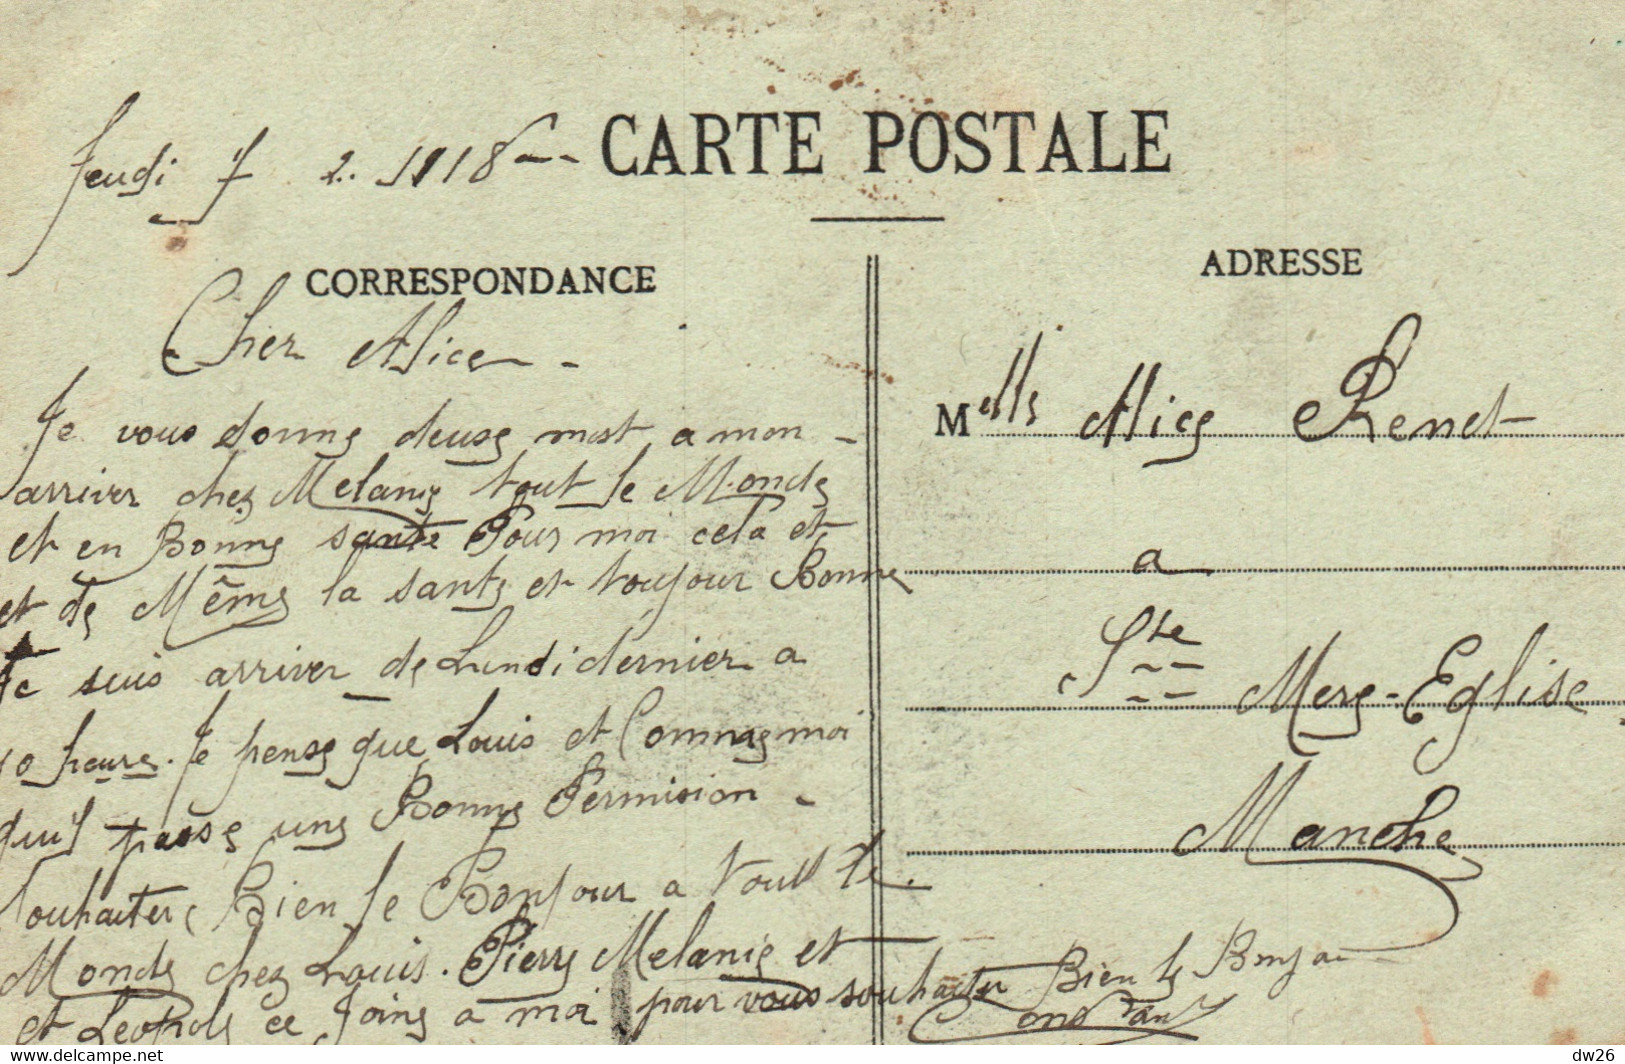 Jeudi 7 2. 1918
CARTE POSTALE
CORRESPONDANCE
ADRESSE
Cher Alice -
Je vous donne deuse most a mon -
arriver chez Melanie tout le Monde
et en Bonne sante Pour moi cela et
et de Même la sante et toujour Bonne
Je suis arriver de Lundi dernier a
10 heure. Je pense que Louis et Comme moi
qu'il passe une Bonne Permision -
Souhaiter Bien le Bonjour a tout le
Monde chez Louis. Pierre Melanie et
et Leopold ce Joine a moi pour vous souhaiter Bien le Bonjour
Constant
Melle Alice Renet
a
Ste Mere-Eglise
Manche
dw26
delcampe.net